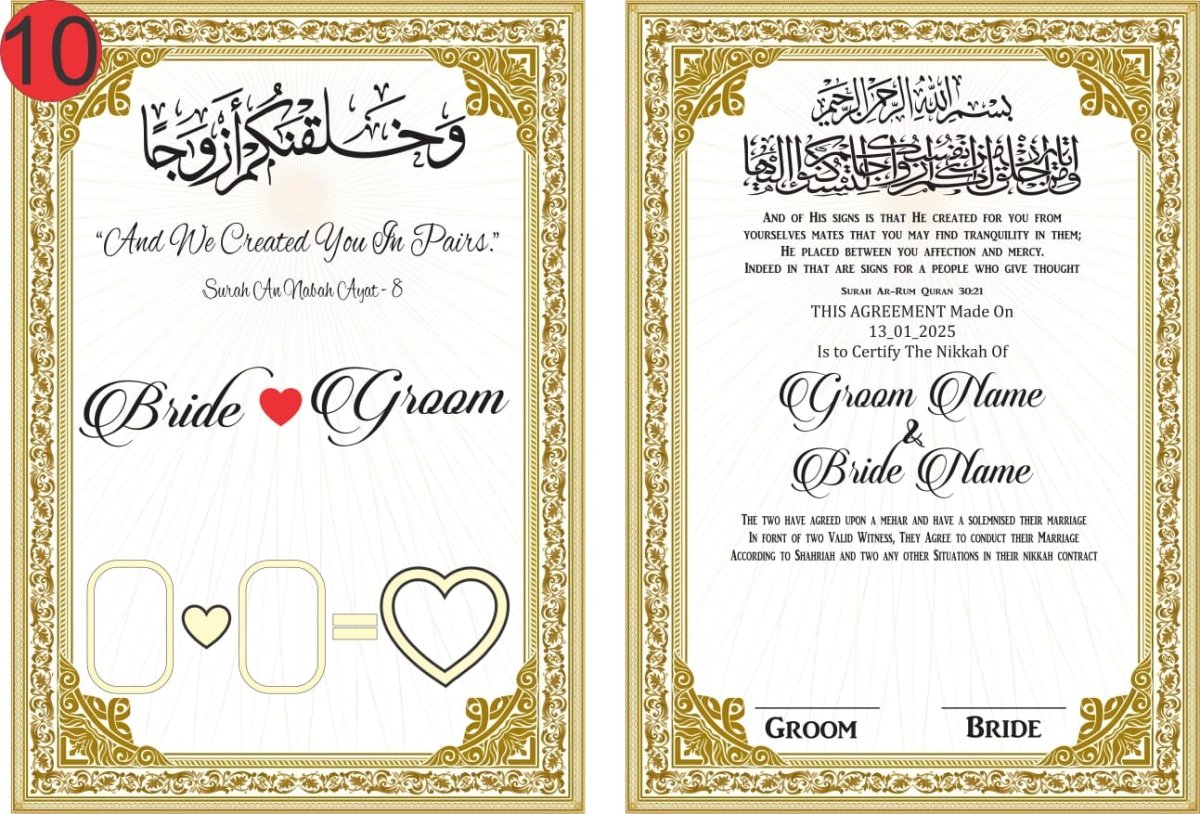 10
وَخَلَقْنَكُمْ أَزْوَجًا
“And We Created You In Pairs.”
Surah An Nabah Ayat - 8
Bride Groom
بسم الله الرحمن الرحيم
And of His signs is that He created for you from
yourselves mates that you may find tranquility in them;
He placed between you affection and mercy.
Indeed in that are signs for a people who give thought
Surah Ar-Rum Quran 30:21
THIS AGREEMENT Made On
13_01_2025
Is to Certify The Nikkah Of
Groom Name
&
Bride Name
The two have agreed upon a mehar and have a solemnised their marriage
In fornt of two Valid Witness, They Agree to conduct their Marriage
According to Shahriah and two any other Situations in their nikkah contract
Groom Bride